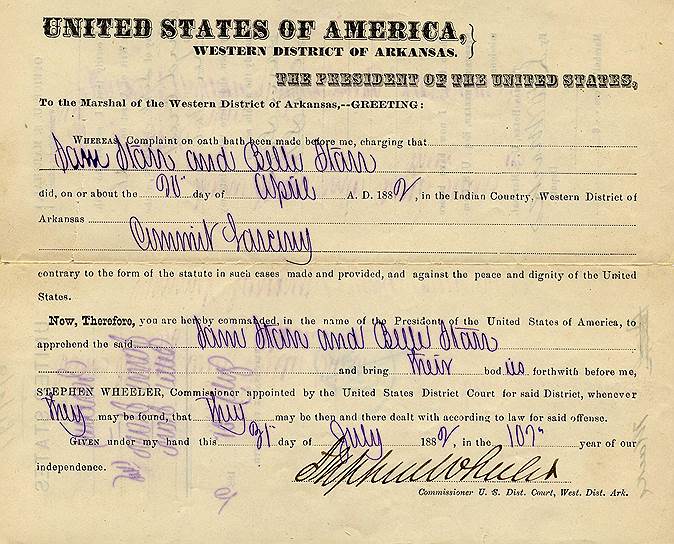 UNITED STATES OF AMERICA,
WESTERN DISTRICT OF ARKANSAS.
THE PRESIDENT OF THE UNITED STATES,
To the Marshal of the Western District of Arkansas,--GREETING:
WHEREAS, Complaint on oath hath been made before me, charging that
Sam Starr and Belle Starr
did, on or about the 20" day of April A. D. 1882, in the Indian Country, Western District of
Arkansas
Commit Larceny
contrary to the form of the statute in such cases made and provided, and against the peace and dignity of the United
States.
Now, Therefore, you are hereby commanded, in the name of the President of the United States of America, to
apprehend the said Sam Starr and Belle Starr
and bring their bodies forthwith before me,
STEPHEN WHEELER, Commissioner appointed by the United States District Court for said District, whenever
they may be found, that they may be then and there dealt with according to law for said offense.
GIVEN under my hand this 31" day of July 1882, in the 107" year of our
independence. Stephen Wheeler
Commissioner U. S. Dist. Court, West. Dist. Ark.